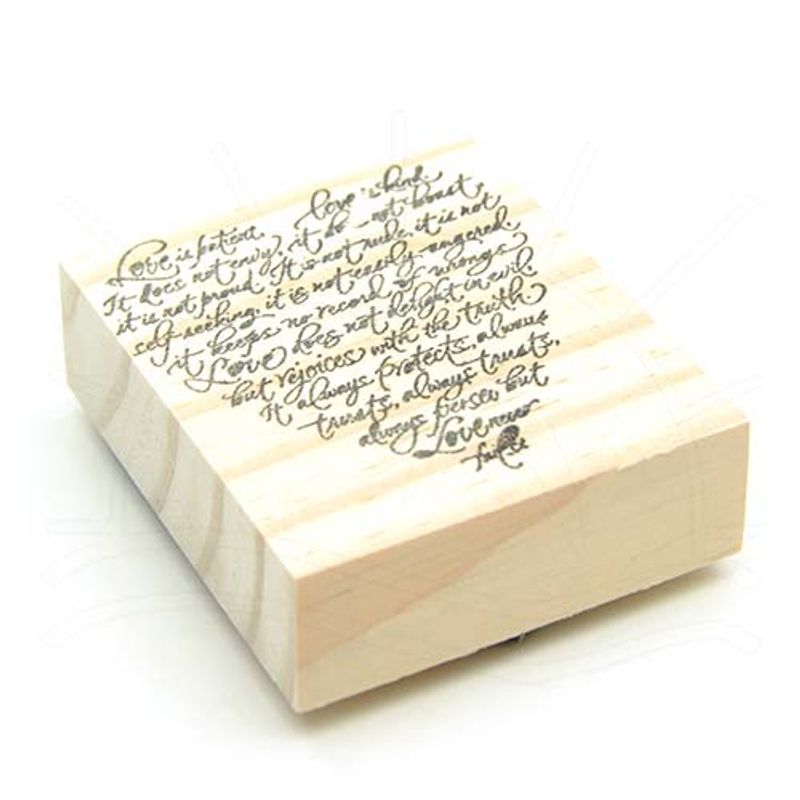 Love is patient, love is kind.
It does not envy, it do not boast,
it is not proud. It is not rude, it is not
self-seeking, it is not easily angered.
it keeps no record of wrongs
Love does not delight in evil.
but rejoices with the truth.
It always protects, always
trusts, always trusts,
always persev but
Love never